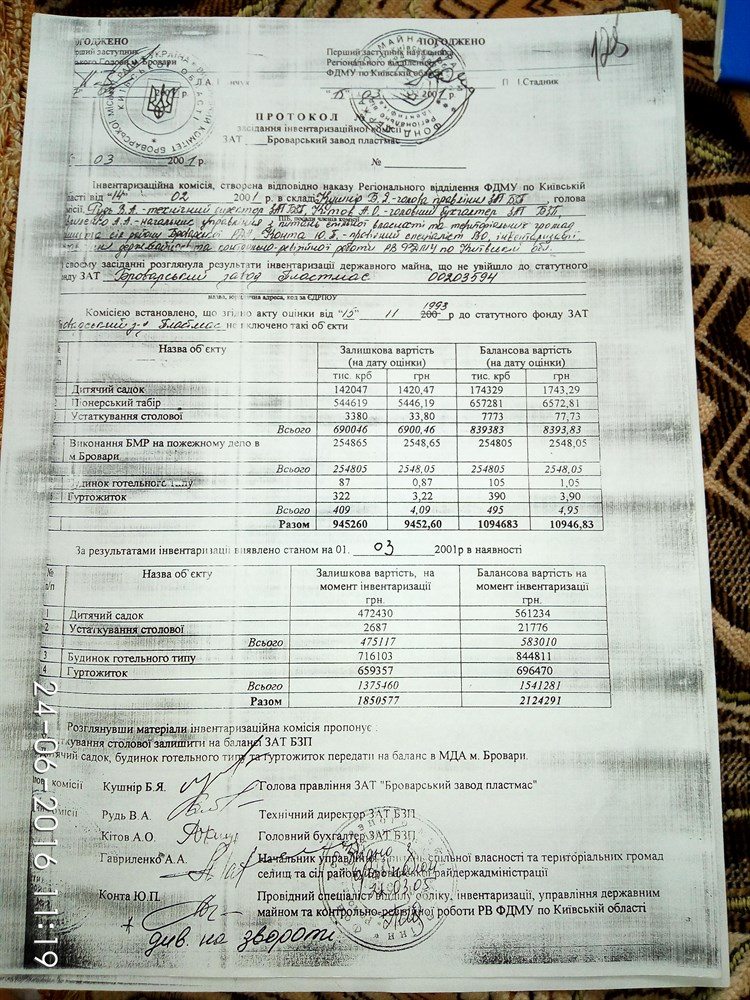 ПОГОДЖЕНО
ПОГОДЖЕНО
Голови м. Бровари
Перший заступник начальника
Регіонального відділення
ФДМУ по Київській області
Л.А.
П.І.Стадник
"15" 03 2001 р.
125
ПРОТОКОЛ №
засідання інвентаризаційної комісії
ЗАТ Броварський завод пластмас
03 2001 р.
№
Інвентаризаційна комісія, створена відповідно наказу Регіонального відділення ФДМУ по Київській
від "14" 02 2001 р. в складі Кушнір Б.Я. - голова правління ЗАТ БЗП, голова
Рудь В.А. - технічний директор ЗАТ БЗП, Кітов А.О. - головний бухгалтер ЗАТ БЗП,
А.А. - начальник управління з питань спільної власності та територіальних громад
ПІБ, посади членів комісії
та сіл району Конта Ю.П. - провідний спеціаліст ВО, інвентаризації,
державн та контрольно-ревізійної роботи РВ ФДМУ по Київській обл.
своєму засіданні розглянула результати інвентаризації державного майна, що не увійшло до статутного
ЗАТ Броварський завод Пластмас 00203594
назва, юридична адреса, код за ЄДРПОУ
Комісією встановлено, що згідно акту оцінки від "15" 11 1993 200 р до статутного фонду ЗАТ
Броварський з-д Пластмас не включено такі об'єкти
Назва об'єкту Залишкова вартість (на дату оцінки) Балансова вартість (на дату оцінки)
тис. крб грн тис. крб грн
Дитячий садок 142047 1420,47 174329 1743,29
Піонерський табір 544619 5446,19 657281 6572,81
Устаткування столової 3380 33,80 7773 77,73
Всього 690046 6900,46 839383 8393,83
Виконання БМР на пожежному депо в 254865 2548,65 254805 2548,05
м Бровари
Всього 254805 2548,05 254805 2548,05
Будинок готельного типу 87 0,87 105 1,05
Гуртожиток 322 3,22 390 3,90
Всього 409 4,09 495 4,95
Разом 945260 9452,60 1094683 10946,83
За результатами інвентаризації виявлено станом на 01. 03 2001р в наявності
№ п/п Назва об'єкту Залишкова вартість, на момент інвентаризації грн. Балансова вартість на момент інвентаризації грн.
1 Дитячий садок 472430 561234
2 Устаткування столової 2687 21776
Всього 475117 583010
3 Будинок готельного типу 716103 844811
4 Гуртожиток 659357 696470
Всього 1375460 1541281
Разом 1850577 2124291
Розглянувши матеріали інвентаризаційна комісія пропонує :
кування столової залишити на балансі ЗАТ БЗП
садок, будинок готельного типу та гуртожиток передати на баланс в МДА м. Бровари.
комісії Кушнір Б.Я. Голова правління ЗАТ "Броварський завод пластмас"
Рудь В.А. Технічний директор ЗАТ БЗП
Кітов А.О. Головний бухгалтер ЗАТ БЗП
Гавриленко А.А. Начальник управління з питань спільної власності та територіальних громад
селищ та сіл району Броварської райдержадміністрації
Конта Ю.П. Провідний спеціаліст відділу обліку, інвентаризації, управління державним
майном та контрольно-ревізійної роботи РВ ФДМУ по Київській області
див. на звороті
24-06-2016 11:19